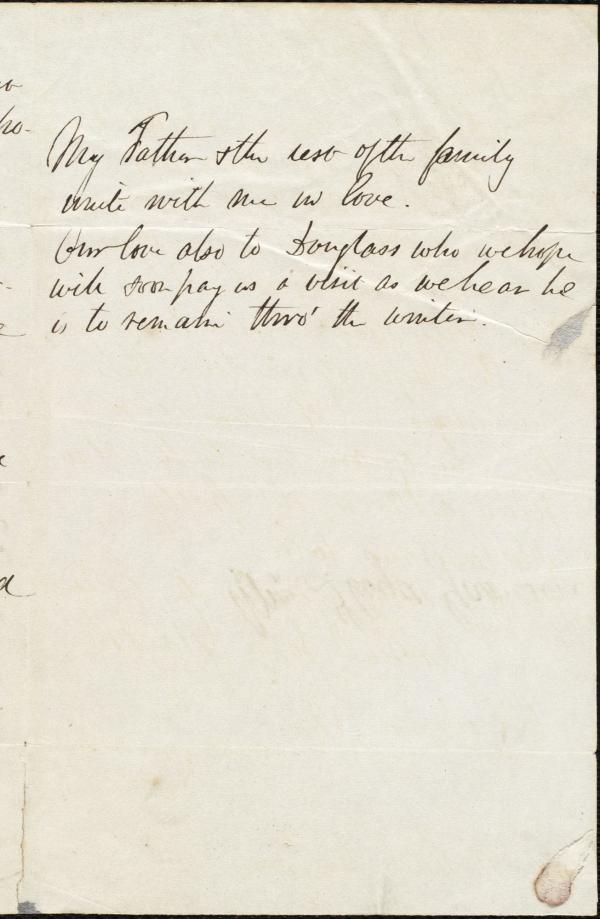 My Father & the rest of the family
unite with me in love.
Our love also to Douglass who we hope
will soon pay us a visit as we hear he
is to remain thro' the winter.